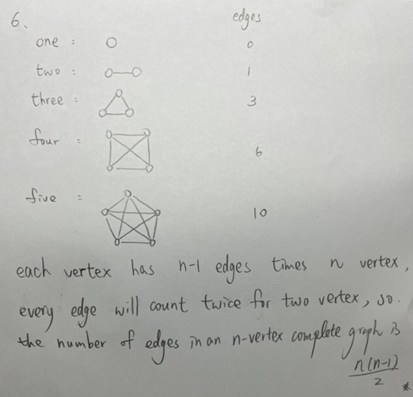 6.
edges
one : 0
two : 1
three : 3
four : 6
five : 10
each vertex has n-1 edges times n vertex,
every edge will count twice for two vertex, so.
the number of edges in an n-vertex complete graph is
n(n-1)
2 *